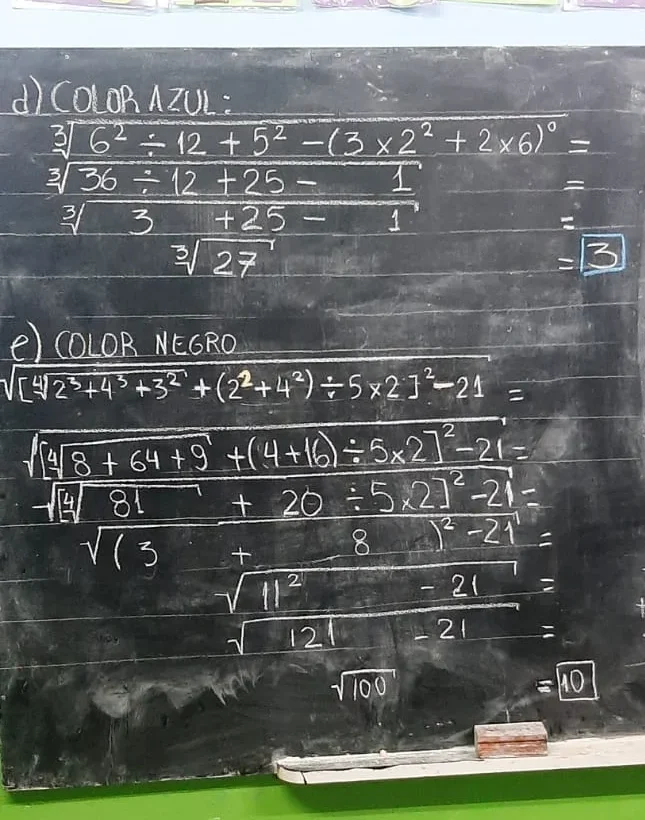 d) COLOR AZUL:
∛6² ÷ 12 + 5² - (3 × 2² + 2 × 6)⁰ =
∛36 ÷ 12 + 25 - 1 =
∛3 + 25 - 1 =
∛27 = 3
e) COLOR NEGRO
√[∜2³+4³+3² + (2²+4²) ÷ 5 × 2]² - 21 =
√[∜8 + 64 + 9 + (4+16) ÷ 5 × 2]² - 21 =
√[∜81 + 20 ÷ 5 × 2]² - 21 =
√(3 + 8)² - 21 =
√11² - 21 =
√121 - 21 =
√100 = 10